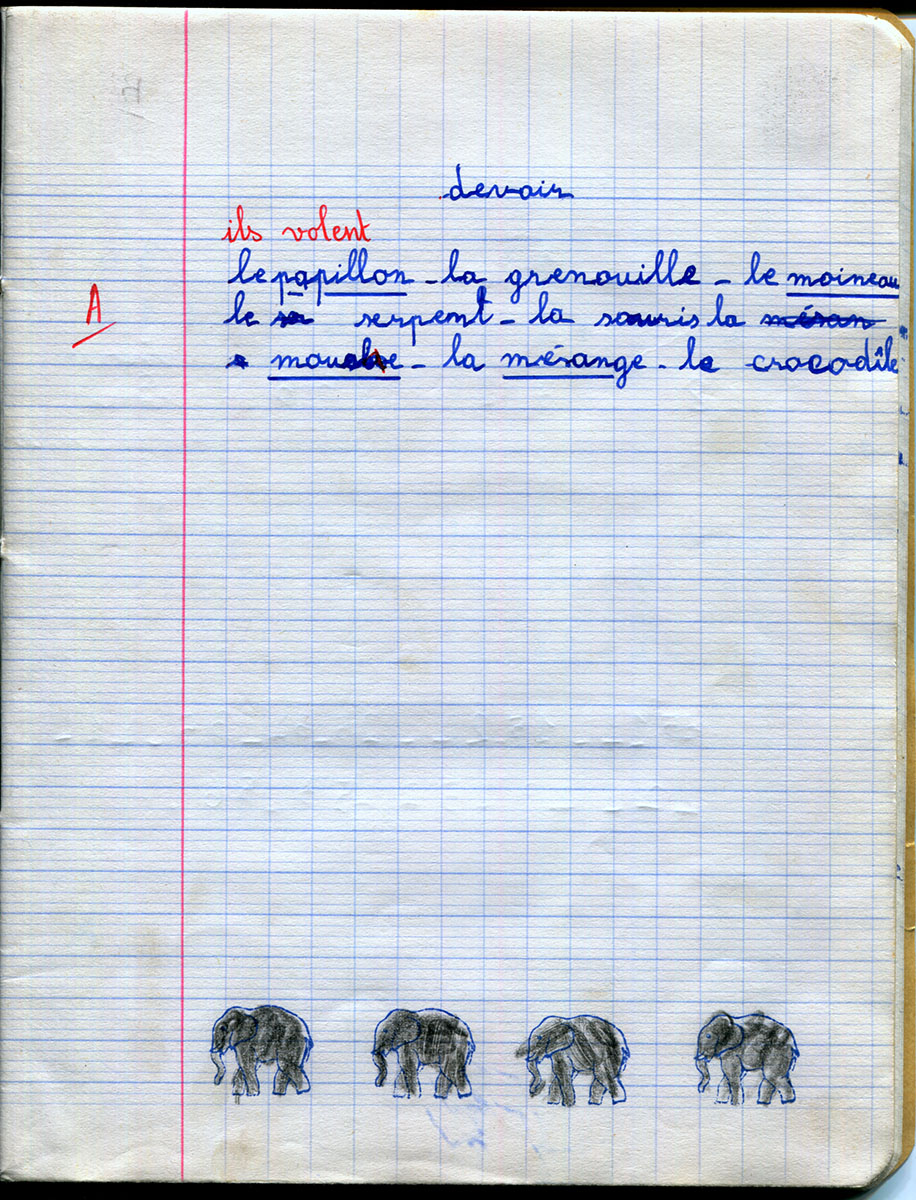 devoir
ils volent
le papillon - la grenouille - le moineau
le serpent - la souris la mésan
A
mouche - la mésange - le crocodîle